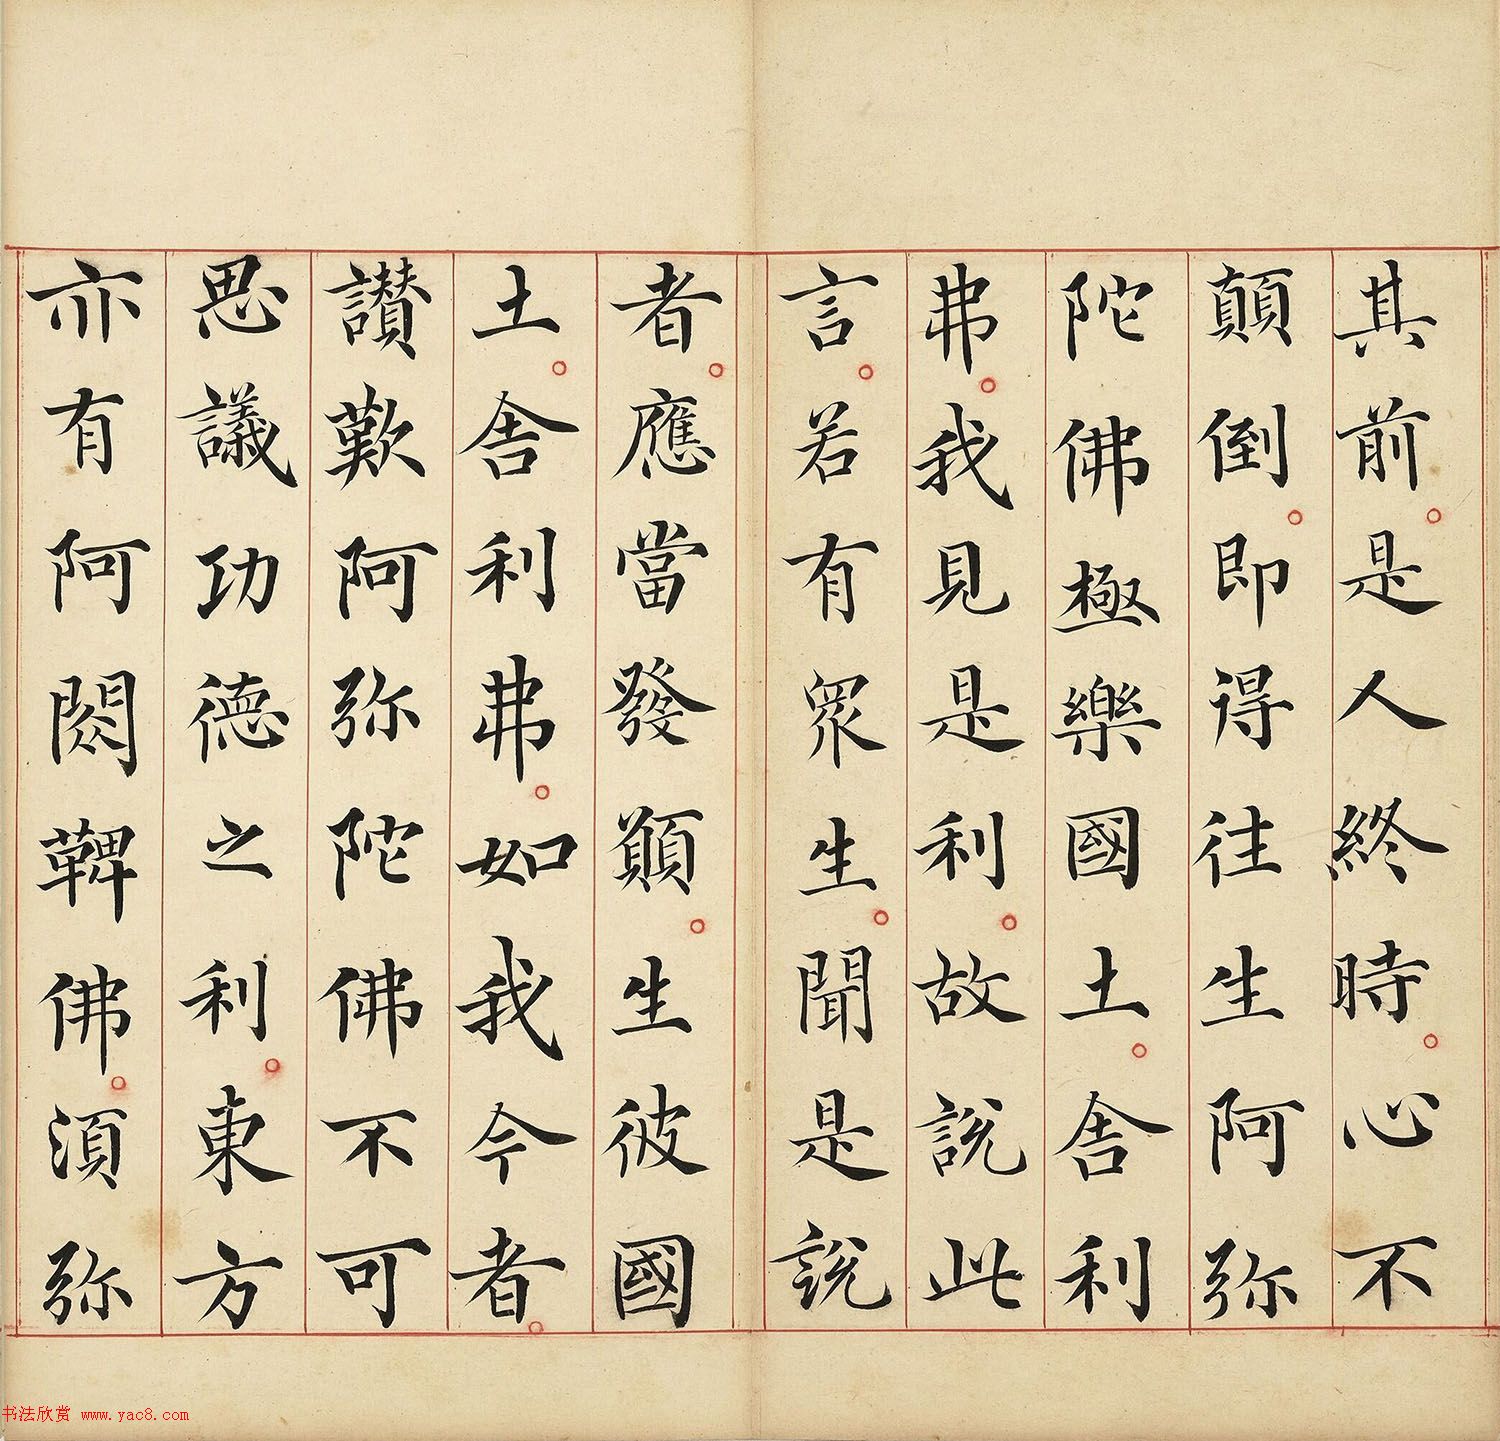 其前。是人終時。心不
顛倒。即得往生阿弥
陀佛極樂國土。舎利
弗。我見是利。故說此
言。若有衆生。聞是說
者。應當發願。生彼國
土。舎利弗。如我今者。
讃歎阿弥陀佛不可
思議功德之利。東方
亦有阿閦鞞佛。須弥
书法欣赏 www.yac8.com